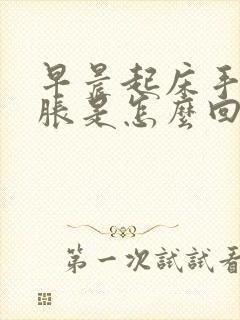 早晨起床手
脹是怎麼回
第一次試試看